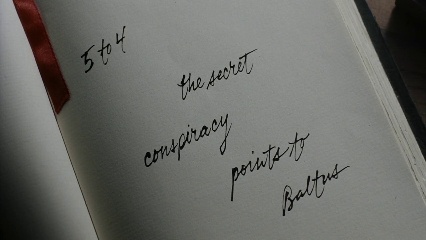 5 to 4
the secret
conspiracy
points to
Baltus